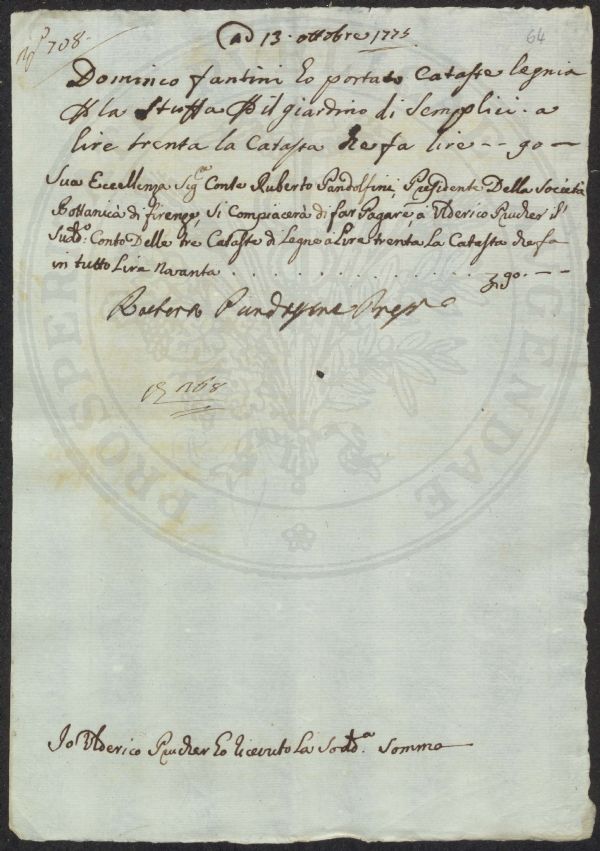 N.º 708.
64
Ad 13. ottobre 1775
Dominco Fantini ho portato Cataste legnia
P la Stuffa P il giardino di Semplici. a
lire trenta la Catasta che fa lire -- 90 -
Sua Eccellenza Sigre Conte Ruberto Pandolfini, Presidente Della Società
Bottanica di firenze, Si Compiacerà di far Pagare, à Ulderico Prucher il
Sudo. Conto Delle tre Cataste di Legne a Lire trenta La Catasta che fa
in tutto Lire Navanta . . . . . . . . . . . 90. - -
Roberto Pandolfini Pres
168
Io Ulderico Prucher ho riceuto La Sodda. Somma
PROSPER
UENDAE